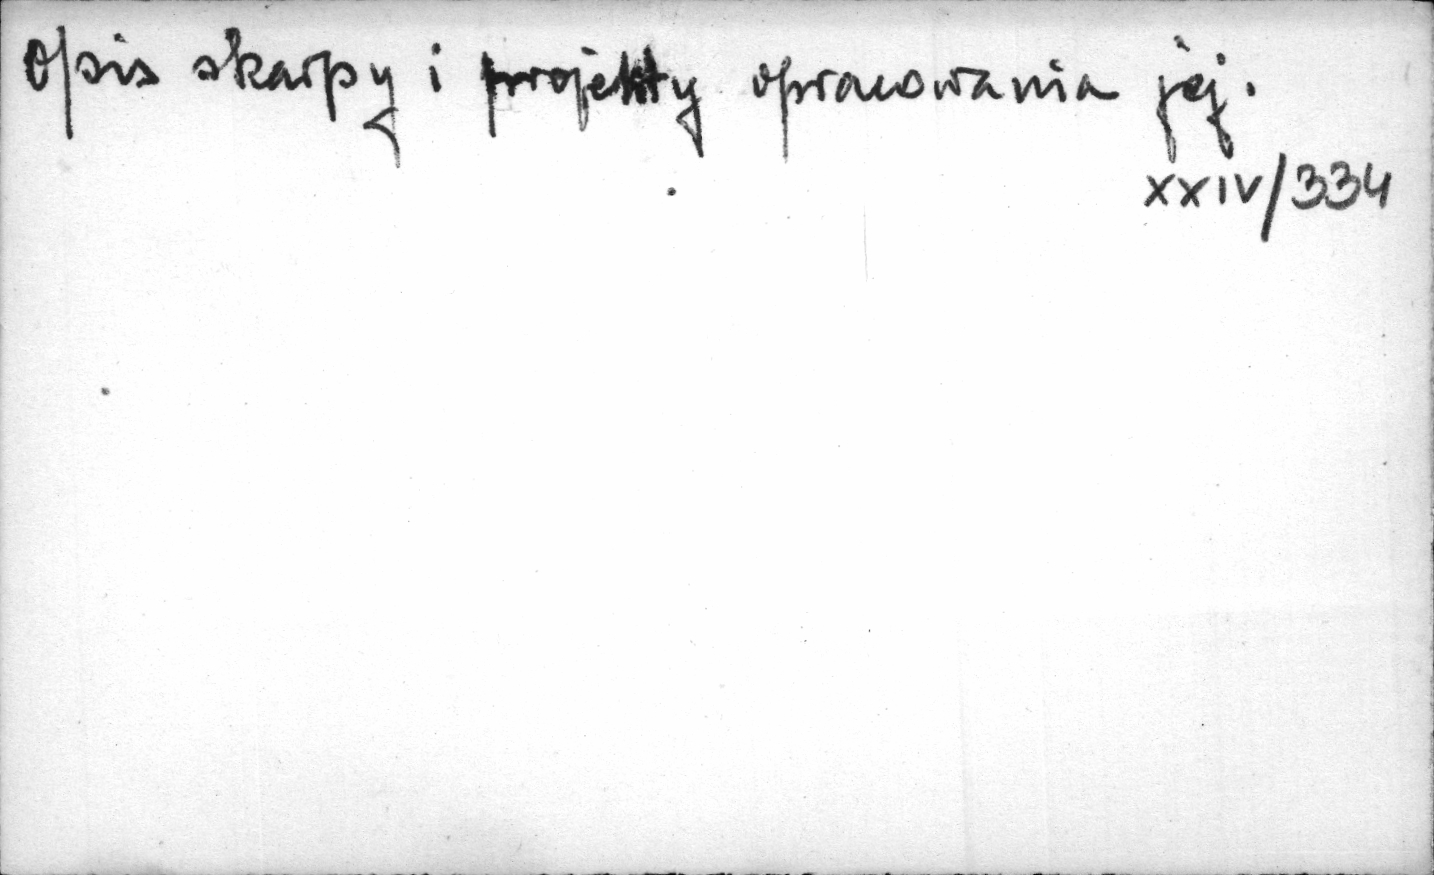 Opis skarpy i projekty opracowania jej.
XXIV/334